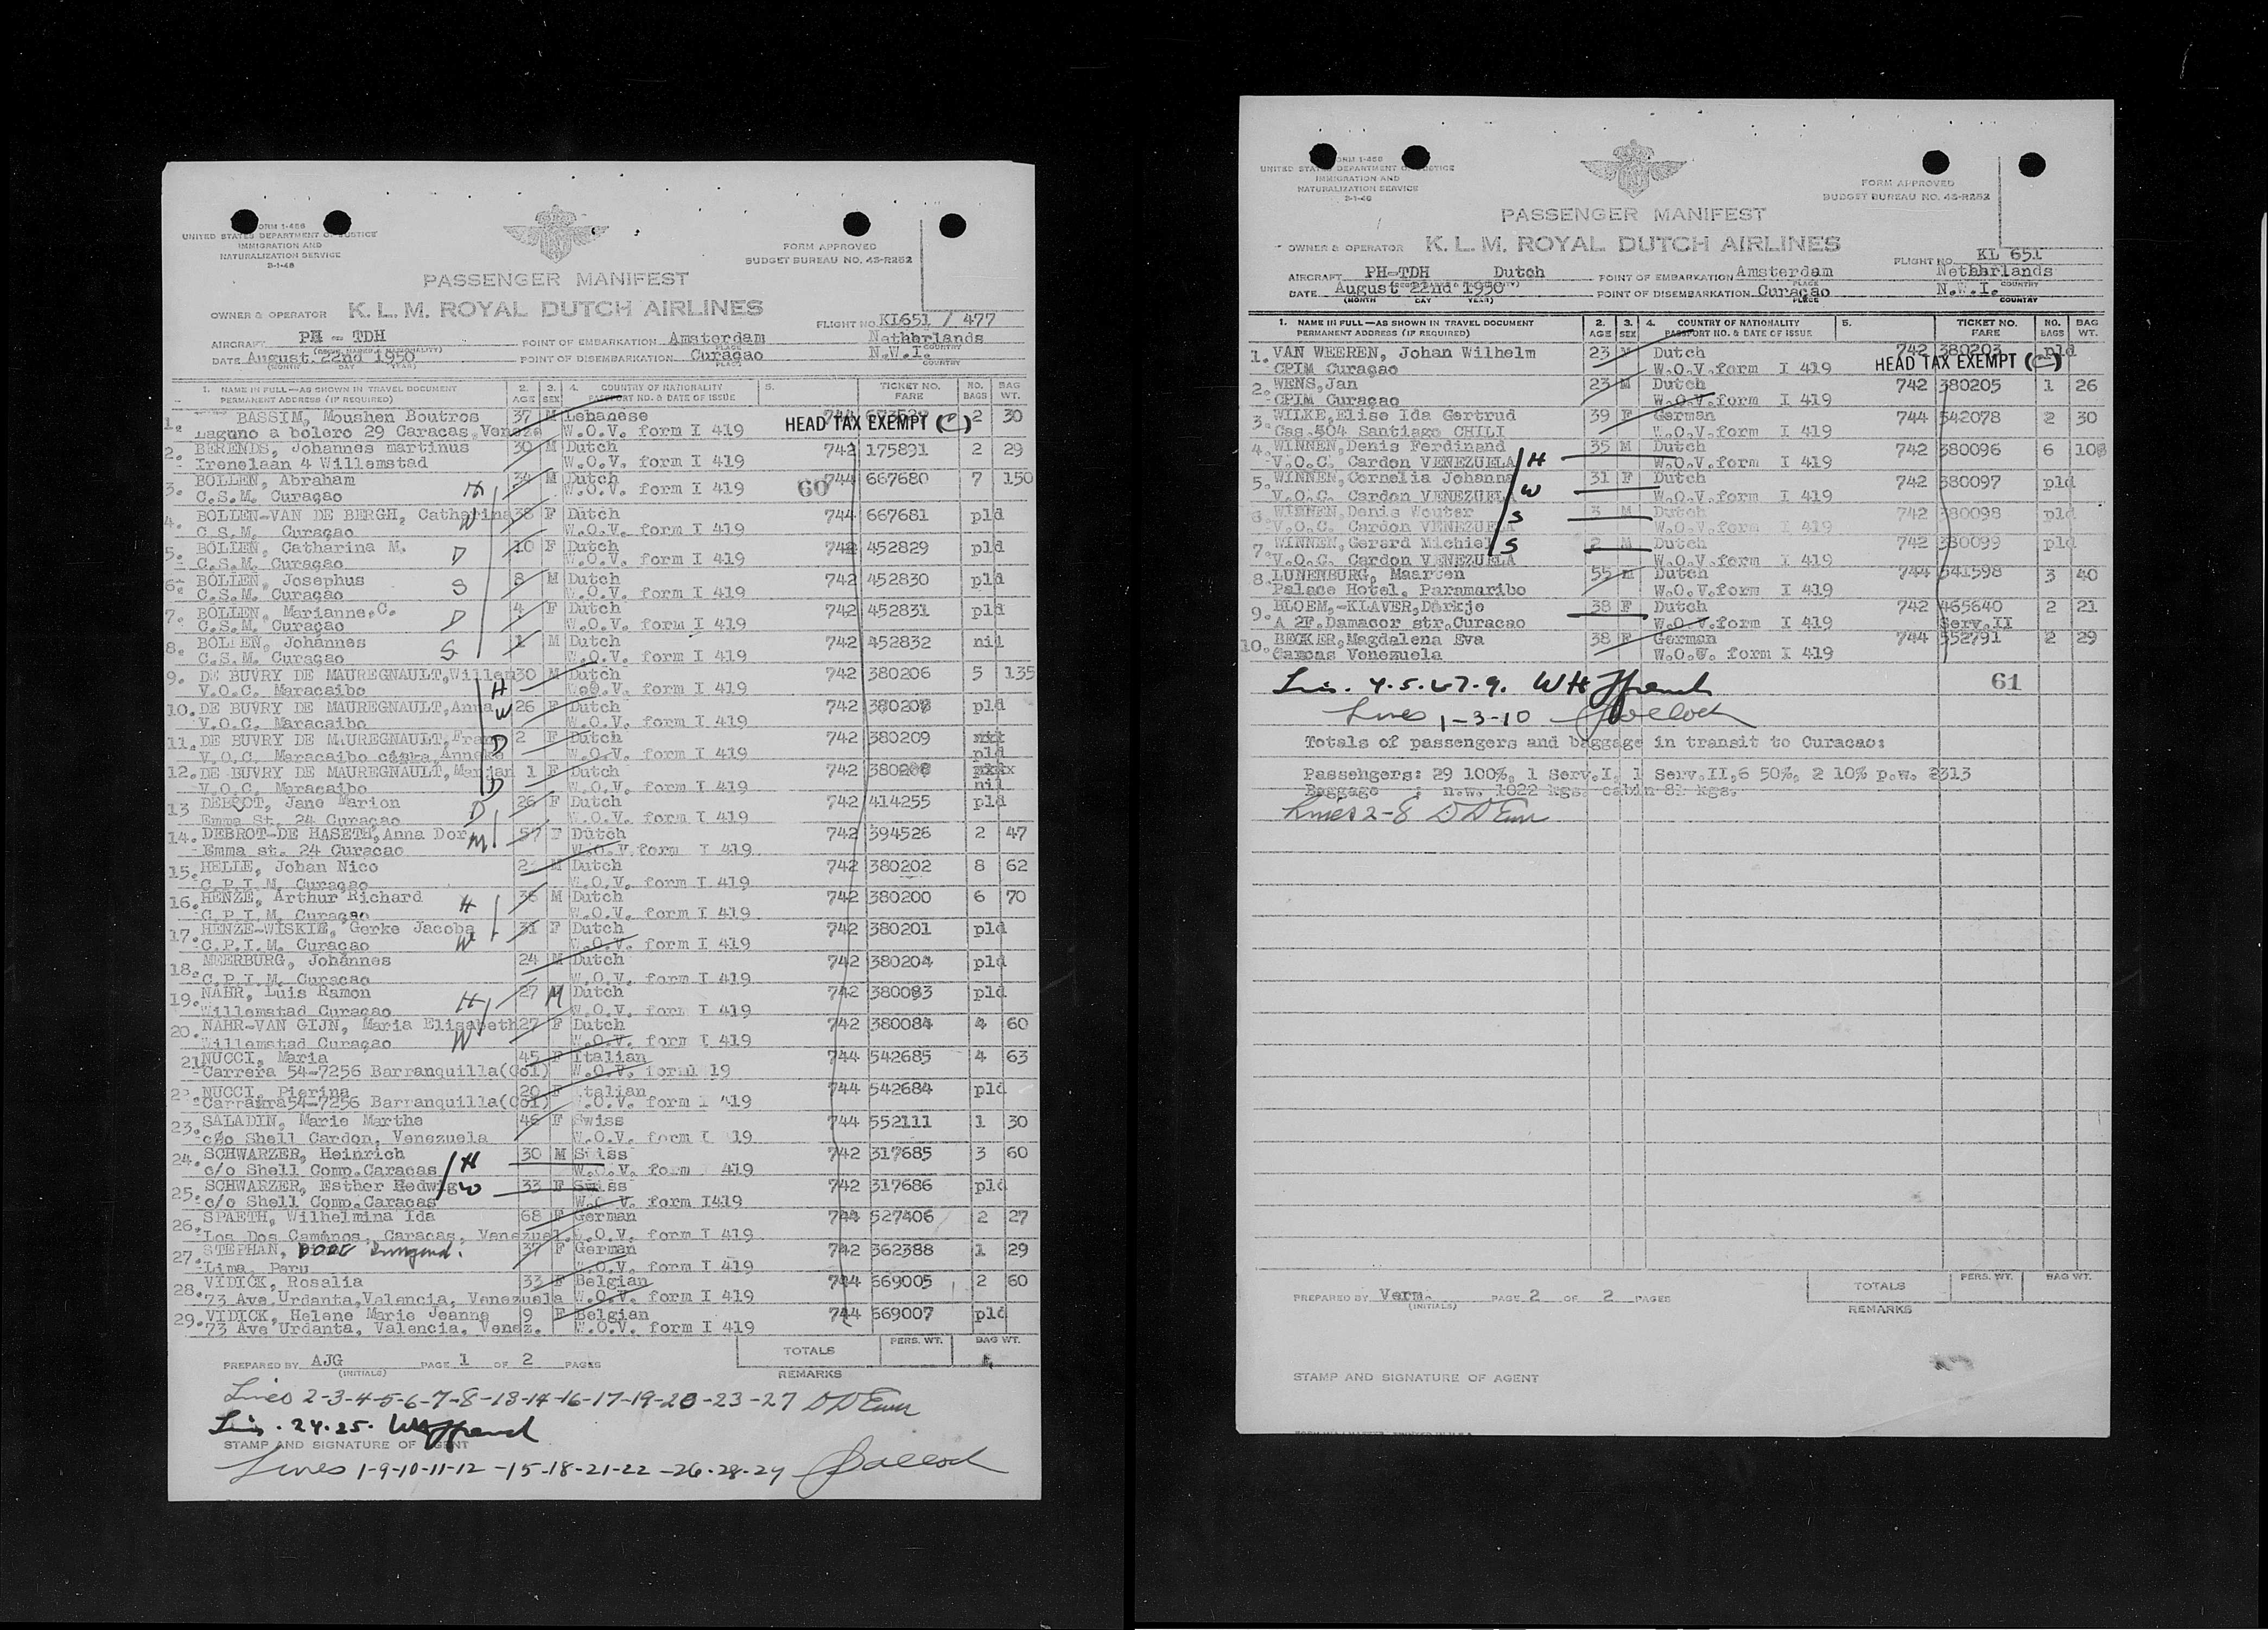 FORM 1-466
UNITED STATES DEPARTMENT OF JUSTICE
IMMIGRATION AND
NATURALIZATION SERVICE
FORM APPROVED
BUDGET BUREAU NO. 43-R252
PASSENGER MANIFEST
OWNER & OPERATOR K. L. M. ROYAL DUTCH AIRLINES
FLIGHT NO. KL651 / 477
AIRCRAFT PH - TDH POINT OF EMBARKATION Amsterdam Netherlands
DATE August 22nd 1950 POINT OF DISEMBARKATION Curaçao N.W.I.
1. NAME IN FULL—AS SHOWN IN TRAVEL DOCUMENT 2. 3. 4. COUNTRY OF NATIONALITY 5. TICKET NO. NO. BAG
PERMANENT ADDRESS (IF REQUIRED) AGE SEX PASSPORT NO. & DATE OF ISSUE FARE BAGS WT.
1. BASSIM, Moushen Boutros 37 M Lebanese 744 2 30
Laguno a bolero 29 Caracas W.O.V. form I 419 HEAD TAX EXEMPT (C)
2. BERENDS, Johannes martinus 30 M Dutch 742 175891 2 29
Irenelaan 4 Willemstad W.O.V. form I 419
3. BOLLEN, Abraham H 34 M Dutch 744 667680 7 150
C.S.M. Curaçao W.O.V. form I 419 60
4. BOLLEN-VAN DE BERGH, Catharina W 38 F Dutch 744 667681 pld
C.S.M. Curaçao W.O.V. form I 419
5. BOLLEN, Catharina M. D 10 F Dutch 742 452829 pld
C.S.M. Curaçao W.O.V. form I 419
6. BOLLEN, Josephus S 8 M Dutch 742 452830 pld
C.S.M. Curaçao W.O.V. form I 419
7. BOLLEN, Marianne,C. D 4 F Dutch 742 452831 pld
C.S.M. Curaçao W.O.V. form I 419
8. BOLLEN, Johannes S 1 M Dutch 742 452832 nil
C.S.M. Curaçao W.O.V. form I 419
9. DE BUVRY DE MAUREGNAULT,Willem H 30 M Dutch 742 380206 5 135
V.O.C. Maracaibo W.O.V. form I 419
10. DE BUVRY DE MAUREGNAULT,Anna W 26 F Dutch 742 pld
V.O.C. Maracaibo W.O.V. form I 419
11. DE BUVRY DE MAUREGNAULT, D 2 F Dutch 742 380209
V.O.C. Maracaibo W.O.V. form I 419 pld
12. DE BUVRY DE MAUREGNAULT, D 1 F Dutch 742
V.O.C. Maracaibo W.O.V. form I 419 nil
13 DEBROT, Jane Marion D 26 F Dutch 742 414255 pld
Emma St. 24 Curaçao W.O.V. form I 419
14. DEBROT-DE HASETH, Anna Dor M 57 F Dutch 742 394526 2 47
Emma st. 24 Curacao W.O.V.form I 419
15. HELLE, Johan Nico M Dutch 742 380202 8 62
C.P.I.M. Curaçao W.O.V. form I 419
16. HENZE, Arthur Richard H M Dutch 742 380200 6 70
C.P.I.M. Curaçao W.O.V. form I 419
17. HENZE-WISKIE, Gerke Jacoba W 31 F Dutch 742 380201 pld
C.P.I.M. Curaçao W.O.V. form I 419
18. MEERBURG, Johannes 24 M Dutch 742 380204 pld
C.P.I.M. Curaçao W.O.V. form I 419
19. NAHR, Luis Ramon H 27 M Dutch 742 380083 pld
Willemstad Curaçao W.O.V. form I 419
20. NAHR-VAN GIJN, Maria Elisabeth W 27 F Dutch 742 380084 4 60
Willemstad Curaçao W.O.V. form I 419
21 NUCCI, Maria 45 F Italian 744 542685 4 63
Carrera 54-7256 Barranquilla(Col) W.O.V. form 19
NUCCI, Pierina 20 F Italian 744 542684 pld
54-7256 Barranquilla(Col) W.O.V. form 419
23. SALADIN, Marie Marthe 46 F Swiss 744 552111 1 30
c/o Shell Cardon, Venezuela W.O.V. form I 19
24. SCHWARZER, Heinrich H 30 M Swiss 742 317685 3 60
c/o Shell Comp.Caracas W.O.V. form 419
25. SCHWARZER, Esther Hedwig W 33 F Swiss 742 317686 pld
c/o Shell Comp.Caracas W.O.V. form I419
26. SPAETH, Wilhelmina Ida 68 F German 744 527406 2 27
Los Dos Caminos, Caracas, Venezuel. W.O.V. form I 419
27. STEPHAN, 37 F German 742 362388 1 29
Lima, Peru W.O.V. form I 419
28. VIDICK, Rosalia 33 F Belgian 744 669005 2 60
73 Ave.Urdanta,Valencia, Venezuela W.O.V. form I 419
29. VIDICK, Helene Marie Jeanne 9 F Belgian 744 669007 pld
73 Ave Urdanta, Valencia, Venez. W.O.V. form I 419
PERS. WT. BAG WT.
TOTALS
PREPARED BY AJG PAGE 1 OF 2 PAGES
(INITIALS) REMARKS
Lines 2-3-4-5-6-7-8-13-14-16-17-19-20-23-27
Lin. 24.25.
STAMP AND SIGNATURE OF AGENT
Lines 1-9-10-11-12-15-18-21-22-26-28-29
FORM 1-466
UNITED STATES DEPARTMENT OF JUSTICE
IMMIGRATION AND
NATURALIZATION SERVICE
FORM APPROVED
BUDGET BUREAU NO. 43-R252
PASSENGER MANIFEST
OWNER & OPERATOR K. L. M. ROYAL DUTCH AIRLINES
FLIGHT NO. KL 651
AIRCRAFT PH-TDH Dutch POINT OF EMBARKATION Amsterdam Netherlands
DATE August 22nd 1950 POINT OF DISEMBARKATION Curaçao N.W.I.
(MONTH DAY YEAR) PLACE COUNTRY
1. NAME IN FULL—AS SHOWN IN TRAVEL DOCUMENT 2. 3. 4. COUNTRY OF NATIONALITY 5. TICKET NO. NO. BAG
PERMANENT ADDRESS (IF REQUIRED) AGE SEX PASSPORT NO. & DATE OF ISSUE FARE BAGS WT.
1. VAN WEEREN, Johan Wilhelm 23 M Dutch 742 380203 pld
CPIM Curaçao W.O.V. form I 419 HEAD TAX EXEMPT (C)
2. WENS,Jan 23 M Dutch 742 380205 1 26
CPIM Curaçao W.O.V.form I 419
3. WILKE,Elise Ida Gertrud 39 F German 744 542078 2 30
Cas.504 Santiago CHILI W.O.V.form I 419
4. WINNEN,Denis Ferdinand H 35 M Dutch 742 380096 6
V.O.C. Cardon VENEZUELA W.O.V.form I 419
5. WINNEN,Cornelia Johanna W 31 F Dutch 742 380097 pld
V.O.C. Cardon VENEZUELA W.O.V.form I 419
6. WINNEN,Denis Wouter S 3 M Dutch 742 380098 pld
V.O.C. Cardon VENEZUELA W.O.V.form I 419
7. WINNEN,Gerard Michiel S 2 M Dutch 742 380099 pld
V.O.C. Cardon VENEZUELA W.O.V.form I 419
8. LUNENBURG, Maarten 55 M Dutch 744 541598 3 40
Palace Hotel, Paramaribo W.O.V.form I 419
9. BLOEM,-KLAVER,Dirkje 38 F Dutch 742 465640 2 21
A 2F.Damacor str.Curacao W.O.V.form I 419 Serv.II
10. BECKER,Magdalena Eva 38 F German 744 552791 2 29
Carcas Venezuela W.O.V. form I 419
Lin. 4.5.6.7.9. 61
Lines 1-3-10
Totals of passengers and baggage in transit to Curacao:
Passengers: 29 100%, 1 Serv.I, 1 Serv.II,6 50%, 2 10% p.w. 2313
Baggage : n.w. 1022 kgs. cabin 81 kgs.
Lines 2-8
PERS. WT. BAG WT.
TOTALS
PREPARED BY Verm. PAGE 2 OF 2 PAGES
(INITIALS) REMARKS
STAMP AND SIGNATURE OF AGENT